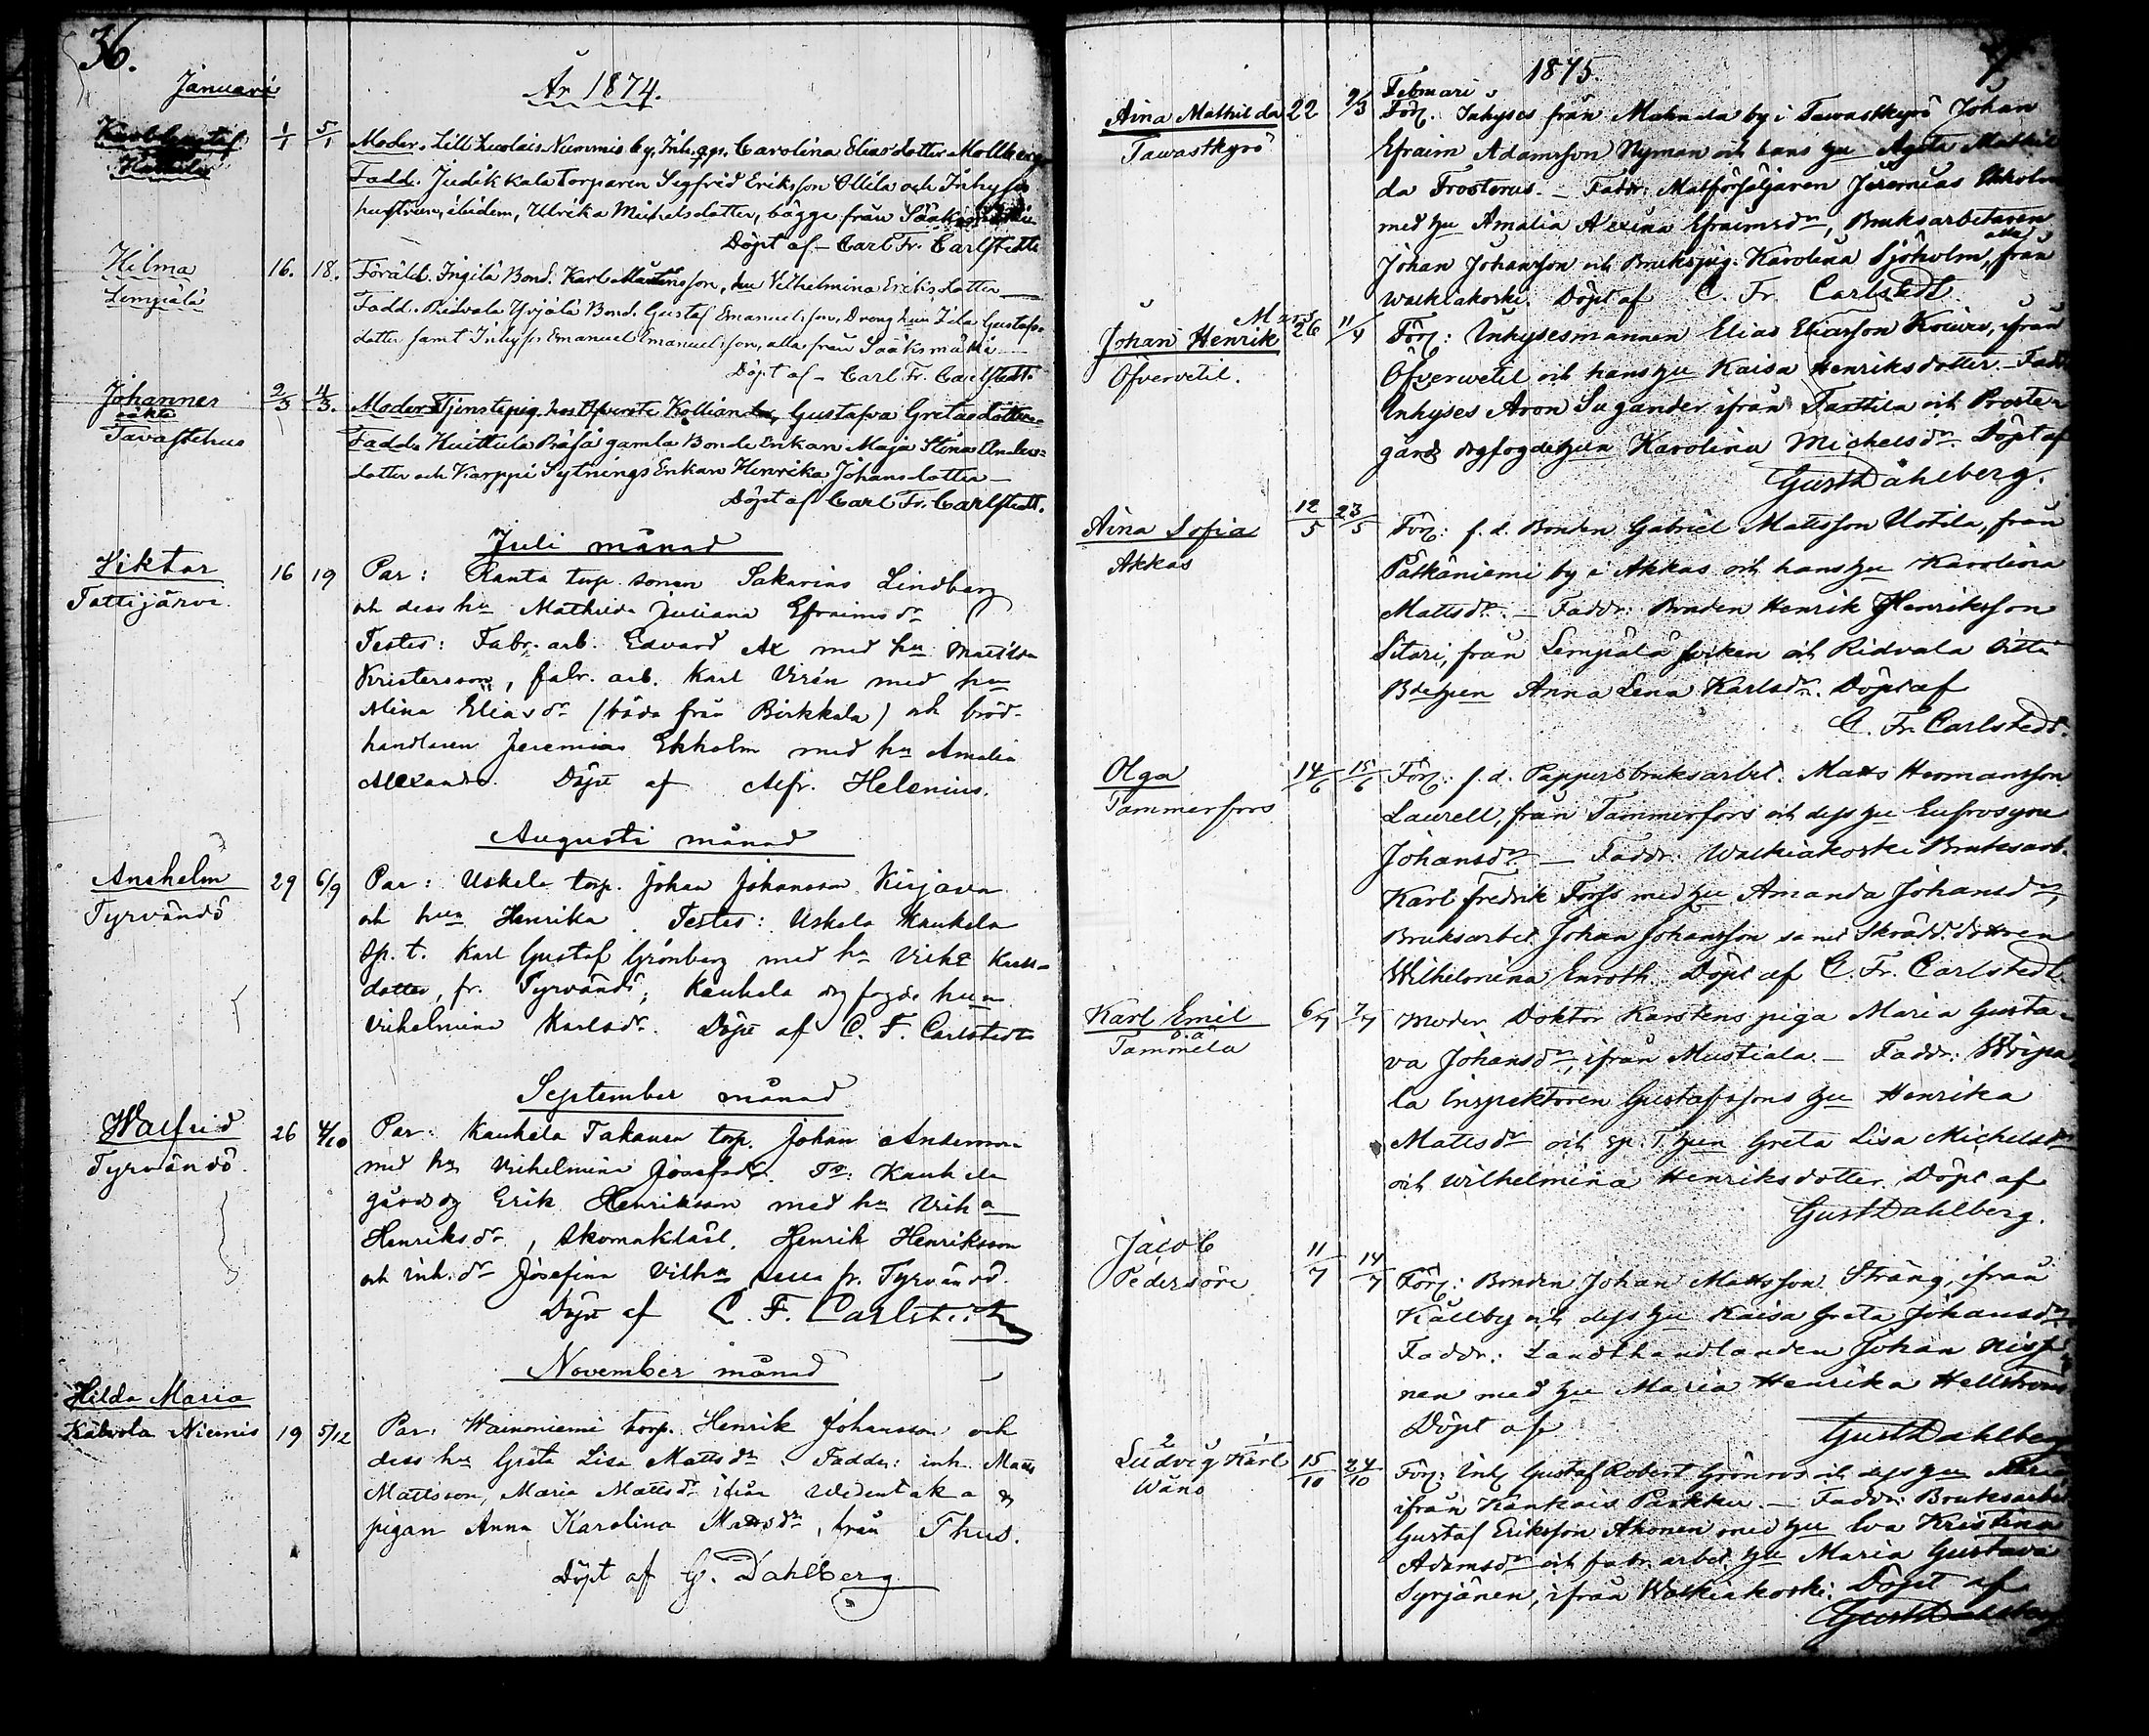 36.
Januari
År 1874.
Karl Gustaf
Hattula
1/1 5/1
Moder. Lill Lucolais Nummis by, Inh. qps. Carolina Eliasdotter Mollberg
Fadd. Judikkala torparen Sigfrid Eriksson Ollila och Inhyses
hustrun, ibidem, Ulrika Michelsdotter, bägge från Sääksmäki
Döpt af - Carl Fr. Carlstedt
Hilma
Lempälä
16. 18.
Föräld. Ingilä Bond. Karl Mårtensson, hu Vilhelmina Eriksdotter
Fadd. Ridvala Yrjälä Bond. Gustaf Emanuelsson, Dreng hun Gustafs-
dotter samt Inhyses Emanuel Emanuelsson, alla från Sääksmäki
Döpt af - Carl Fr. Carlstedt.
Johannes
oäkta
Tavastehus
2/3 4/3.
Moder Tjenstepig. hos Öfverste Kollian Gustafva Gretasdotter
Fadd. Huittula Räfsä gamla Bonde Enkan Maja Stina Anders-
dotter och Karppi Sytnings Enkan Henrika Johansdotter
Döpt af Carl Fr. Carlstedt.
Juli månad
Viktor
Tottijärvi
16 19
Par: Ranta torp. sonen Sakarias Lindberg
och dess hu Mathilda Juliana Efraimsdr
Testes: Fabr. arb. Edvard Ax med hu Matilda
Kristersson, fabr. arb. Karl Virén med hu
Mina Eliasdr (båda från Birkkala) och bröd-
handlaren Jeremias Ekholm med hu Amalia
Alexandra. Döpt af Alfr. Helenius.
Augusti månad
Anshelm
Tyrvändö
29 6/9
Par: Uskela torp. Johan Johansson Kirjava
och hun Henrika. Testes: Uskela Kaukela
sp. t. Karl Gustaf Grönberg med hu Vilha Karls-
dotter, fr. Tyrvändö; Kaukela dg fogde hun
Vilhelmina Karlsdr. Döpt af C. F. Carlstedt
September månad
Walfrid
Tyrvändö.
26 4/10
Par: Kaukela Takanen torp. Johan Andersson
med hu Vilhelmina Josefsdr. Ts: Kaukela
gårdsdg Erik Henriksson med hu Vilha
Henriksdr, skomaklärl. Henrik Henriksson
och inh. dr Josefina Vilhna alla fr. Tyrvändö.
Döpt af C. F. Carlstedt
November månad
Hilda Maria
Kalvola Niemis
19 5/12
Par: Wainoniemi torp. Henrik Johansson och
dess hu Greta Lisa Mattsdr. Faddr: inh. Matts
Mattsson, Maria Mattsdr ifrån Wedentaka &
pigan Anna Karolina Mattsdr, från Thus.
Döpt af G. Dahlberg
1875.
Februari
Aina Mathilda
Tawastkyrö
22 9/3
Förl. Inhyses från Mahnala by i Tawastkyrö Johan
Efraim Adamsson Nyman och hans hu Agata Mathil
da Frosterus. - Faddr: Matförsäljaren Jeremias Ekholm
med hu Amalia Alexina Efraimsdr, Bruksarbetaren
Johan Johansson och Brukspig. Karolina Sjöholm, alla från
Walkiakoski. Döpt af C. Fr. Carlstedt
Mars
Johan Henrik
Öfvervetil.
26 11/4
Förl: Inhysesmannen Elias Eliasson Koivu, ifrån
Öfverwetil och hans hu Kaisa Henriksdotter. - Fadd
Inhyses Aron Sugander ifrån Tarttila och Proste-
gårds dgfogdehun Karolina Michelsdr Döpt af
Gust Dahlberg.
Aina Sofia
Akkas
12/5 23/5
Förl: f. d. Bonden Gabriel Mattsson Ustila, från
Pätkäniemi by i Akkas och hans hu Karolina
Mattsdr. - Faddr: Bonden Henrik Henriksson
Sitari, från Lempälä socken och Ridvala
Bdehun Anna Lena Karlsdr. Döpt af
C. Fr. Carlstedt.
Olga
Tammerfors
14/6 15/6
Förl: f. d. Pappersbruksarbet. Matts Hermansson
Laurell, från Tammerfors och dess hu Eufrosyne
Johansdr. - Faddr: Walkiakoski Bruksarb.
Karl Fredrik Forss med hu Amanda Johansdr,
Bruksarbet. Johan Johansson samt Skrädd. dottren
Wilhelmina Enroth. Döpt af C. Fr. Carlstedt.
Karl Emil
o.ä
Tammela
6/7 7/7
Moder Doktor Karstens piga Maria Gusta-
va Johansdr, ifrån Mustiala. - Faddr: Woipa
la Inspektoren Gustafssons hu Henrika
Mattsdr och sp. T hun Greta Lisa Michelsdr
och Wilhelmina Henriksdotter. Döpt af
Gust Dahlberg.
Jacob
Pedersöre
11/7 14/7
Förl: Bonden Johan Mattsson Sträng, ifrån
Kållby och dess hu Kaisa Greta Johansdr
Faddr: Landthandlanden Johan Niss
nen med hu Maria Henrika Hellström
Döpt af
Gust Dahlberg
2 1
Ludvig Karl
Wånå
15/10 24/10
Förl: Inh. Gustaf Robert Grönros och dess hu Maria
ifrån Kankais Parkku. - Faddr: Bruksarbet
Gustaf Eriksson Ahonen med hu Eva Kristina
Adamsdr och fabr. arbet. hu Maria Gustava
Syrjänen, ifrån Walkiakoski. Döpt af
Gust Dahlberg